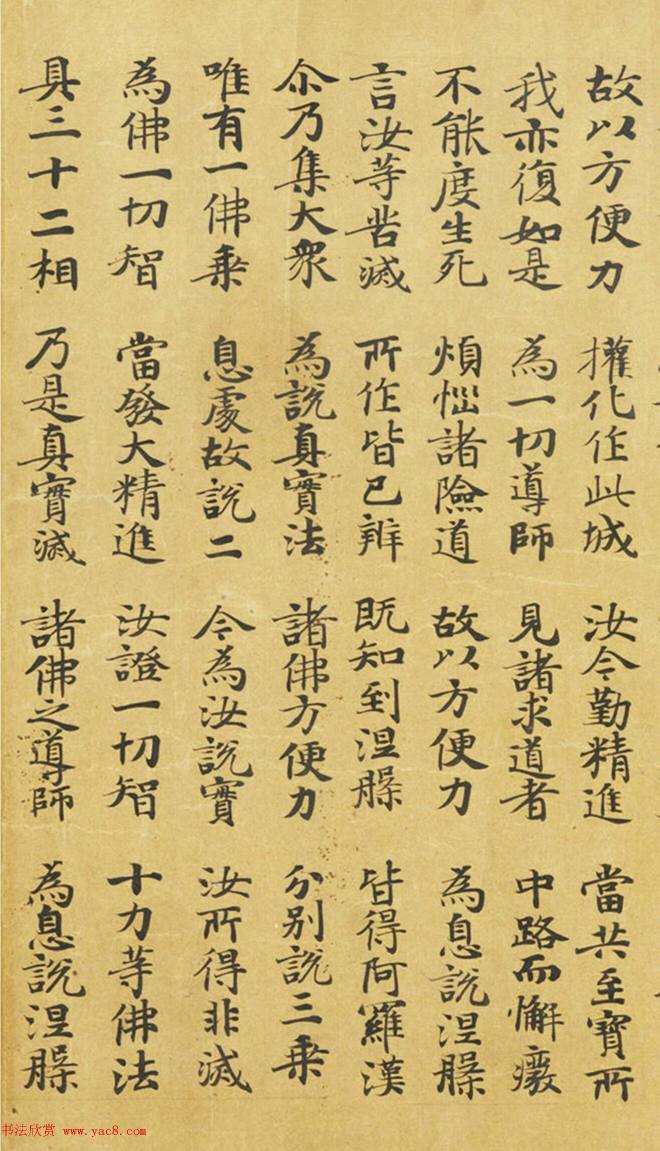 故以方便力 權化作此城 汝今勤精進 當共至寶所
我亦復如是 為一切導師 見諸求道者 中路而懈癈
不能度生死 煩惱諸險道 故以方便力 為息說涅槃
言汝等苦滅 所作皆已辦 既知到涅槃 皆得阿羅漢
尒乃集大眾 為說真實法 諸佛方便力 分別說三乘
唯有一佛乘 息處故說二 今為汝說實 汝所得非滅
為佛一切智 當發大精進 汝證一切智 十力等佛法
具三十二相 乃是真實滅 諸佛之導師 為息說涅槃
书法欣赏 www.yac8.com